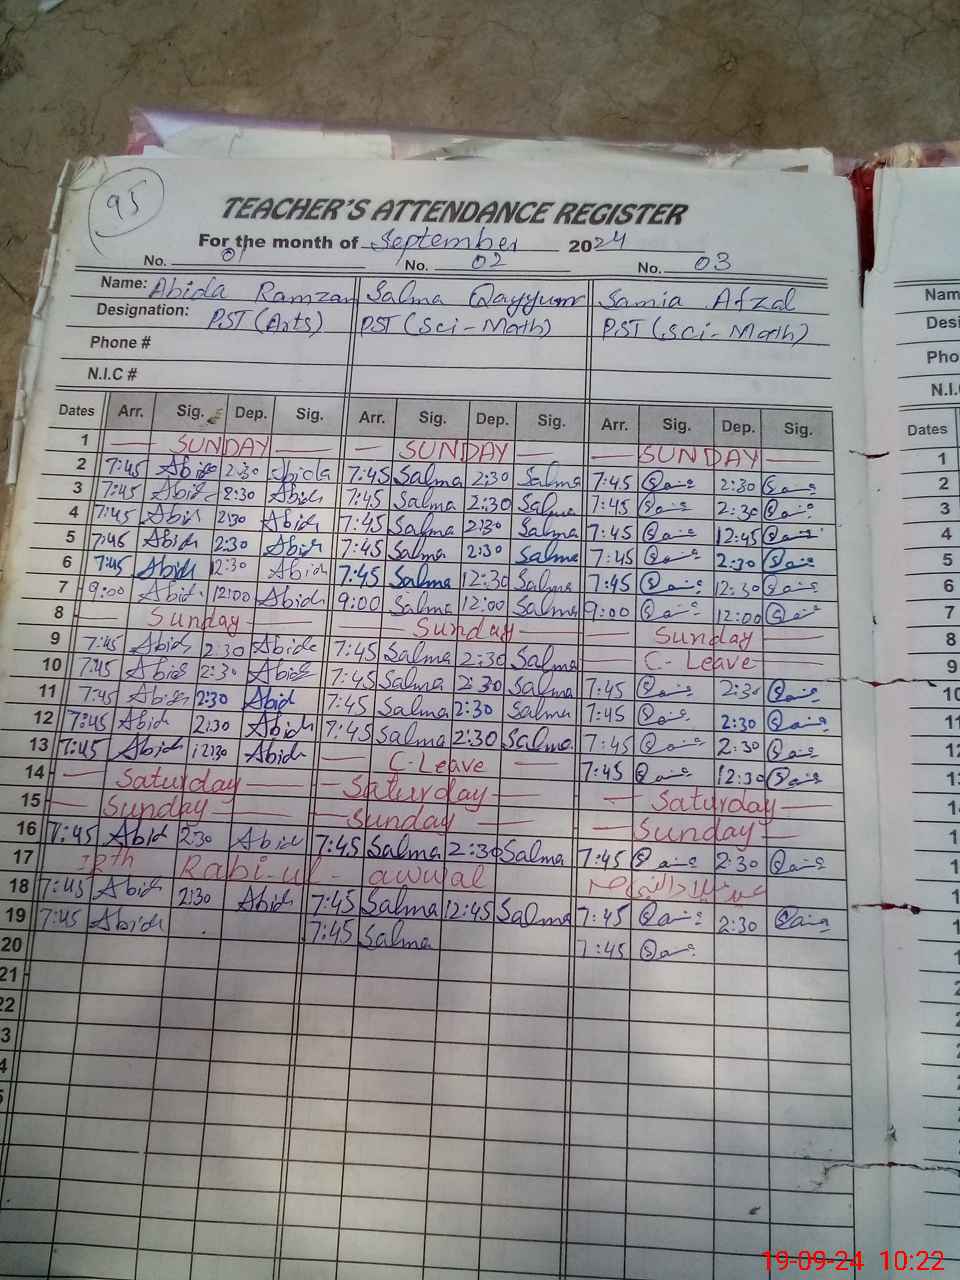 95
TEACHER'S ATTENDANCE REGISTER
For the month of September 2024
No. 01 No. 02 No. 03
Name: Abida Ramzan Salma Qayyum Samia Afzal
Designation: PST (Arts) PST (Sci-Math) PST (Sci-Math)
Phone #
N.I.C #
Dates Arr. Sig. Dep. Sig. Arr. Sig. Dep. Sig. Arr. Sig. Dep. Sig.
1 SUNDAY SUNDAY SUNDAY
2 7:45 Abida 2:30 Abida 7:45 Salma 2:30 Salma 7:45 2:30
3 7:45 Abida 2:30 Abida 7:45 Salma 2:30 Salma 7:45 2:30
4 7:45 Abida 2:30 Abida 7:45 Salma 2:30 Salma 7:45 12:45
5 7:45 Abida 2:30 Abida 7:45 Salma 2:30 Salma 7:45 2:30
6 7:45 Abida 12:30 Abida 7:45 Salma 12:30 Salma 7:45 12:30
7 9:00 Abida 12:00 Abida 9:00 Salma 12:00 Salma 9:00 12:00
8 Sunday Sunday Sunday
9 7:45 Abida 2:30 Abida 7:45 Salma 2:30 Salma C-Leave
10 7:45 Abida 2:30 Abida 7:45 Salma 2:30 Salma 7:45 2:30
11 7:45 Abida 2:30 Abid 7:45 Salma 2:30 Salma 7:45 2:30
12 7:45 Abida 2:30 Abida 7:45 Salma 2:30 Salma 7:45 2:30
13 7:45 Abida 12:30 Abida C-Leave 7:45 12:30
14 Saturday Saturday Saturday
15 Sunday Sunday Sunday
16 7:45 Abid 2:30 Abida 7:45 Salma 2:30 Salma 7:45 2:30
17 12th Rabi-ul-awwal
18 7:45 Abida 2:30 Abida 7:45 Salma 12:45 Salma 7:45 2:30
19 7:45 Abida 7:45 Salma 7:45
20
21
22
Nam
Desi
Pho
N.I.C
Dates
1
2
3
4
5
6
7
8
9
10
11
12
13
19-09-24 10:22